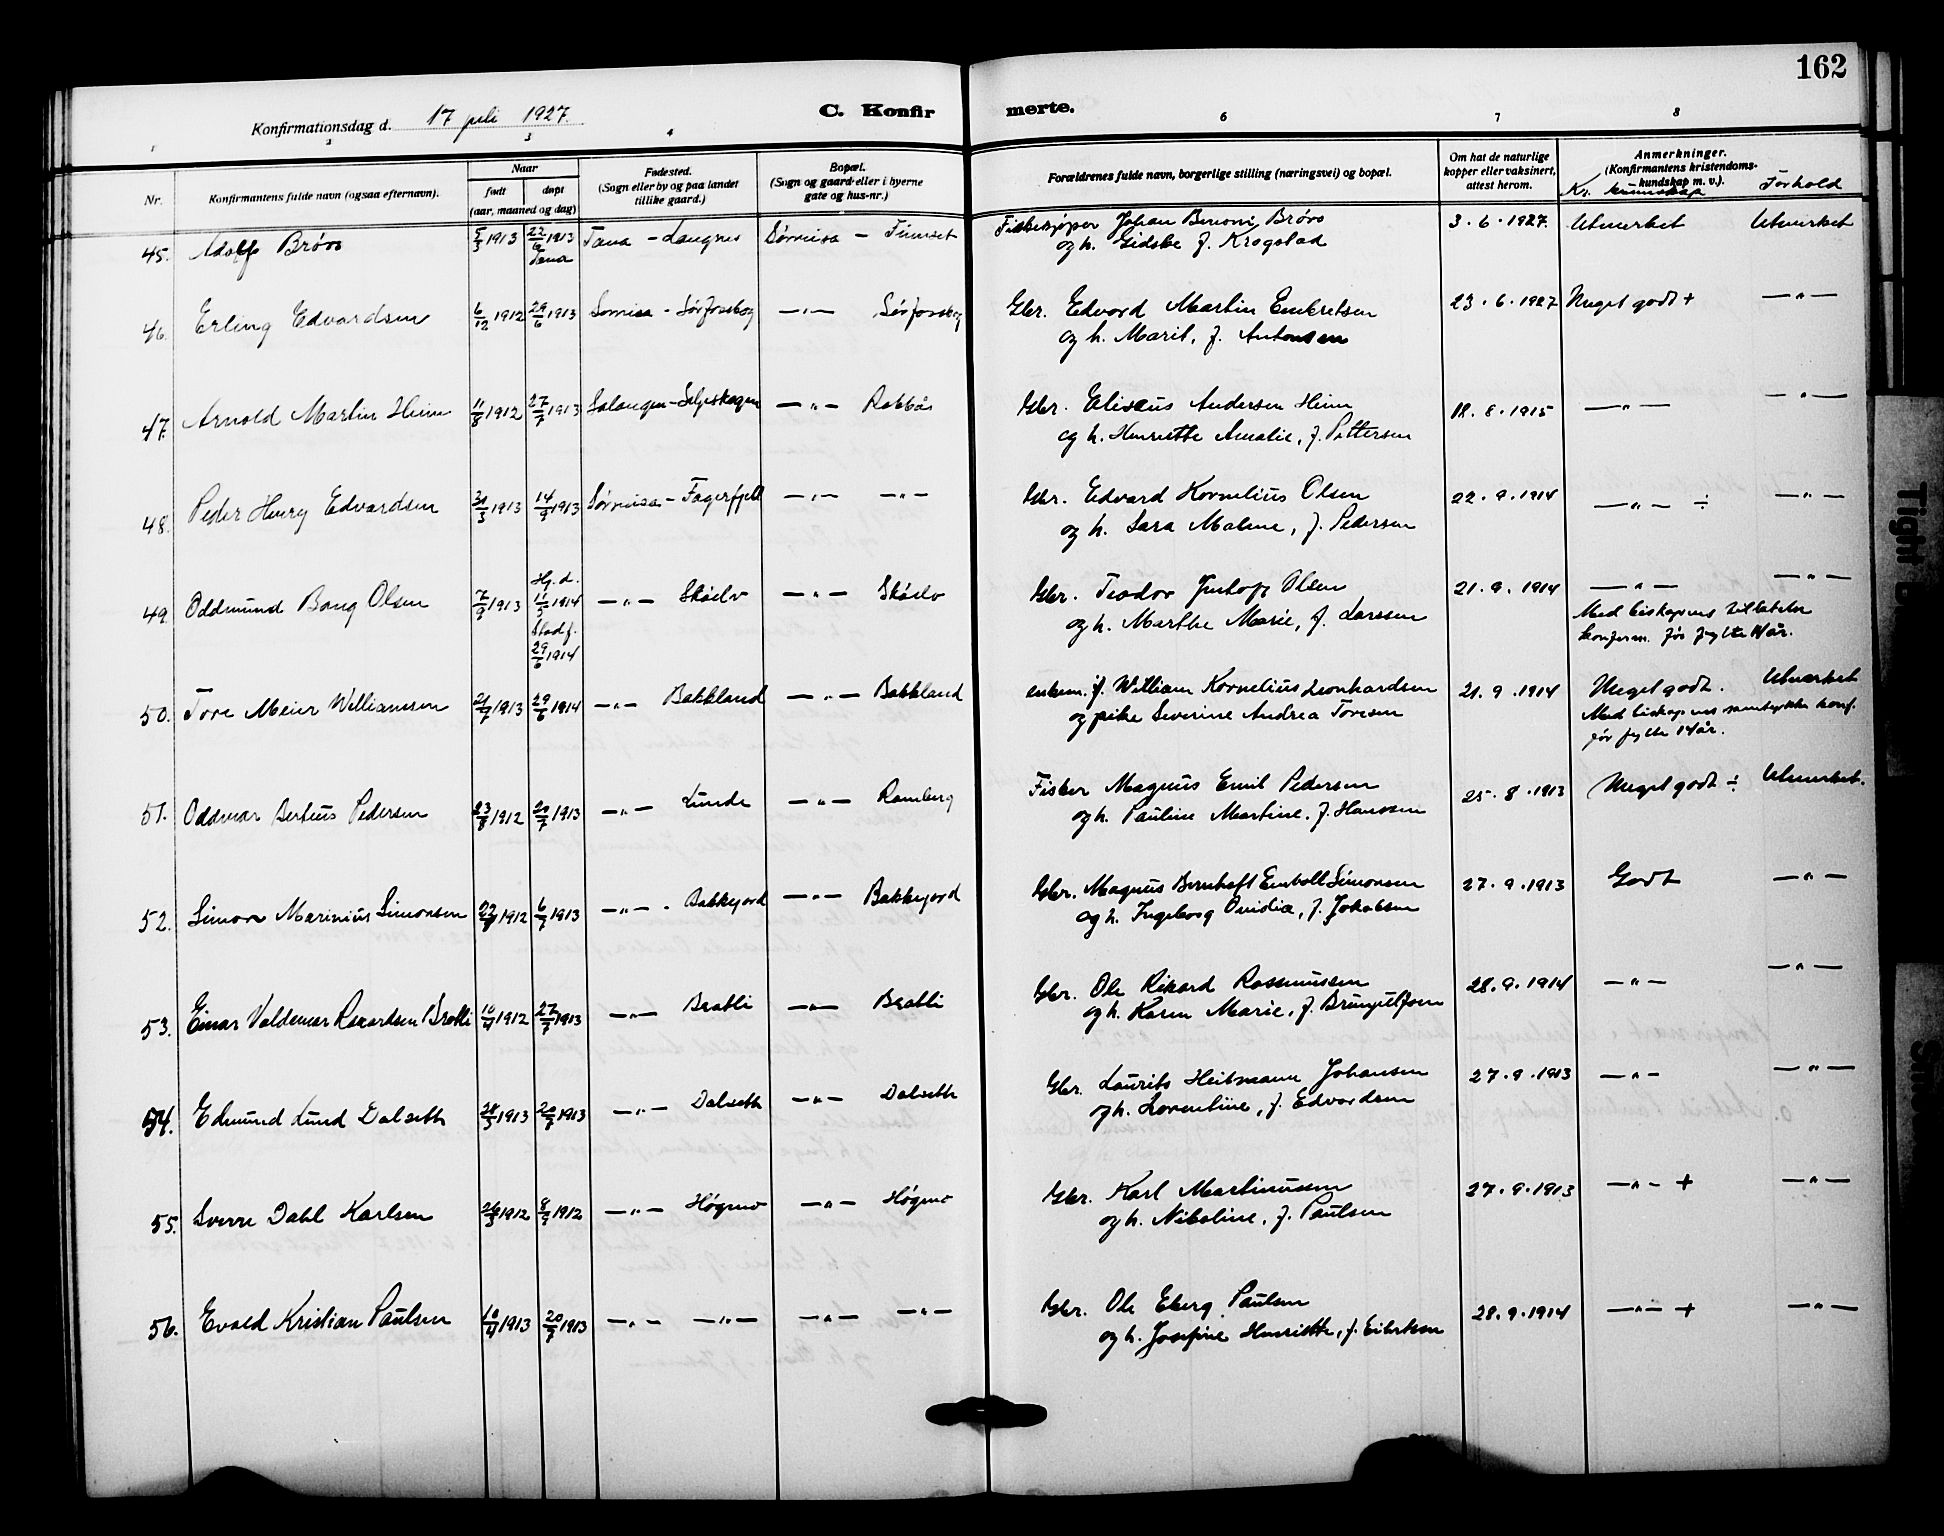 162
Konfirmationsdag d. 17 juli 1927.
C. Konfirmerte.
1 2 3 4 6 7 8
Nr.
Konfirmantens fulde navn (ogsaa efternavn).
Naar
født
døpt
(aar, maaned og dag)
Fødested.
(Sogn eller by og paa landet
tillike gaard.)
Bopæl.
(Sogn og gaard eller i byerne
gate og hus-nr.)
Forældrenes fulde navn, borgerlige stilling (næringsvei) og bopæl.
Om hat de naturlige
kopper eller vaksinert,
attest herom.
Anmerkninger.
(Konfirmantens kristendoms-
kundskap m. v.).
Kr. kunnskap Forhold
45. Adolf Brørs 5/3 1913 22/6 1913 Tana - Langnes Sørreisa - Finnset Fiskekjøper Johan Benoni Brørs 3.6.1927. Utmerket Utmerket
Tana og h. Gidske f. Krogstad
46. Erling Edvardsen 6/12 1912 29/6 1913 Sørreisa - Sørfossbog —"— Sørfossbog Gbr. Edvard Martin Enkretsen 23.6.1927 Meget godt + —"—
og h. Marit, f. Antonsen
47. Arnold Martin Heim 11/8 1912 27/7 1913 Salangen - Seljeskogen —"— Rabbås Gbr. Eliseus Andersen Heim 12.8.1915 —"— —"—
og h. Henriette Amalie, f. Pettersen
48. Peder Henry Edvardsen 31/3 1913 14/9 1913 Sørreisa - Fagerfjell —"— —"— Gbr. Edvard Kornelius Olsen 22.9.1914 —"— ÷ —"—
og h. Sara Malene, f. Pedersen
49. Oddmund Bang Olsen 7/9 1913 Hj. d. 11/5 1914 —"— Skøelv —"— Skøelv Gbr. Teodor Olsen 21.9.1914 —"— —"—
Stadf. 29/6 1914 og h. Marthe Marie, f. Larssen Med biskopens tillatelse
konferm. før fylte 14 år.
50. Tore Meier Williamsen 21/7 1913 29/6 1914 —"— Bakkland —"— Bakkland enkem. f. William Kornelius Leonhardsen 21.9.1914 Meget godt. Utmerket
og pike Severine Andrea Toresen Med biskopens samtykke konf.
før fylte 14 år.
51. Oddmar Bertius Pedersen 23/8 1912 20/7 1913 —"— Lunde —"— Ramberg Fisker Magnus Emil Pedersen 25.8.1913 Meget godt ÷ Utmerket.
og h. Pauline Martine, f. Hanssen
52. Simon Marinius Simonsen 1912 6/7 1913 —"— Bakkejord —"— Bakkejord Gbr. Magnus Bernhoft Simonsen 27.9.1913 Godt —"—
og h. Ingeborg Ovidia, f. Jakobsen
53. Einar Valdemar Rikardsen Bratli 1912 27/7 1913 —"— Bratli —"— Bratli Gbr. Ole Rikard Rasmussen 28.9.1914 —"— —"—
og h. Karen Marie, f. Brynjulfsen
54. Edmund Lund Dalseth 28/3 1913 20/7 1913 —"— Dalseth —"— Dalseth Gbr. Laurits Heitmann Johansen 27.9.1913 —"— —"—
og h. Lorentine, f. Edvardsen
55. Sverre Dahl Karlsen 26/3 1912 8/9 1912 —"— Høgmo —"— Høgmo Gbr. Karl Martinussen 27.9.1913 —"— + —"—
og h. Nikoline, f. Paulsen
56. Evald Kristian Paulsen 1913 20/7 1913 —"— —"— —"— —"— Gbr. Ole Eberg Paulsen 28.9.1914 —"— + —"—
og h. Josefine Henriette, f. Eilertsen